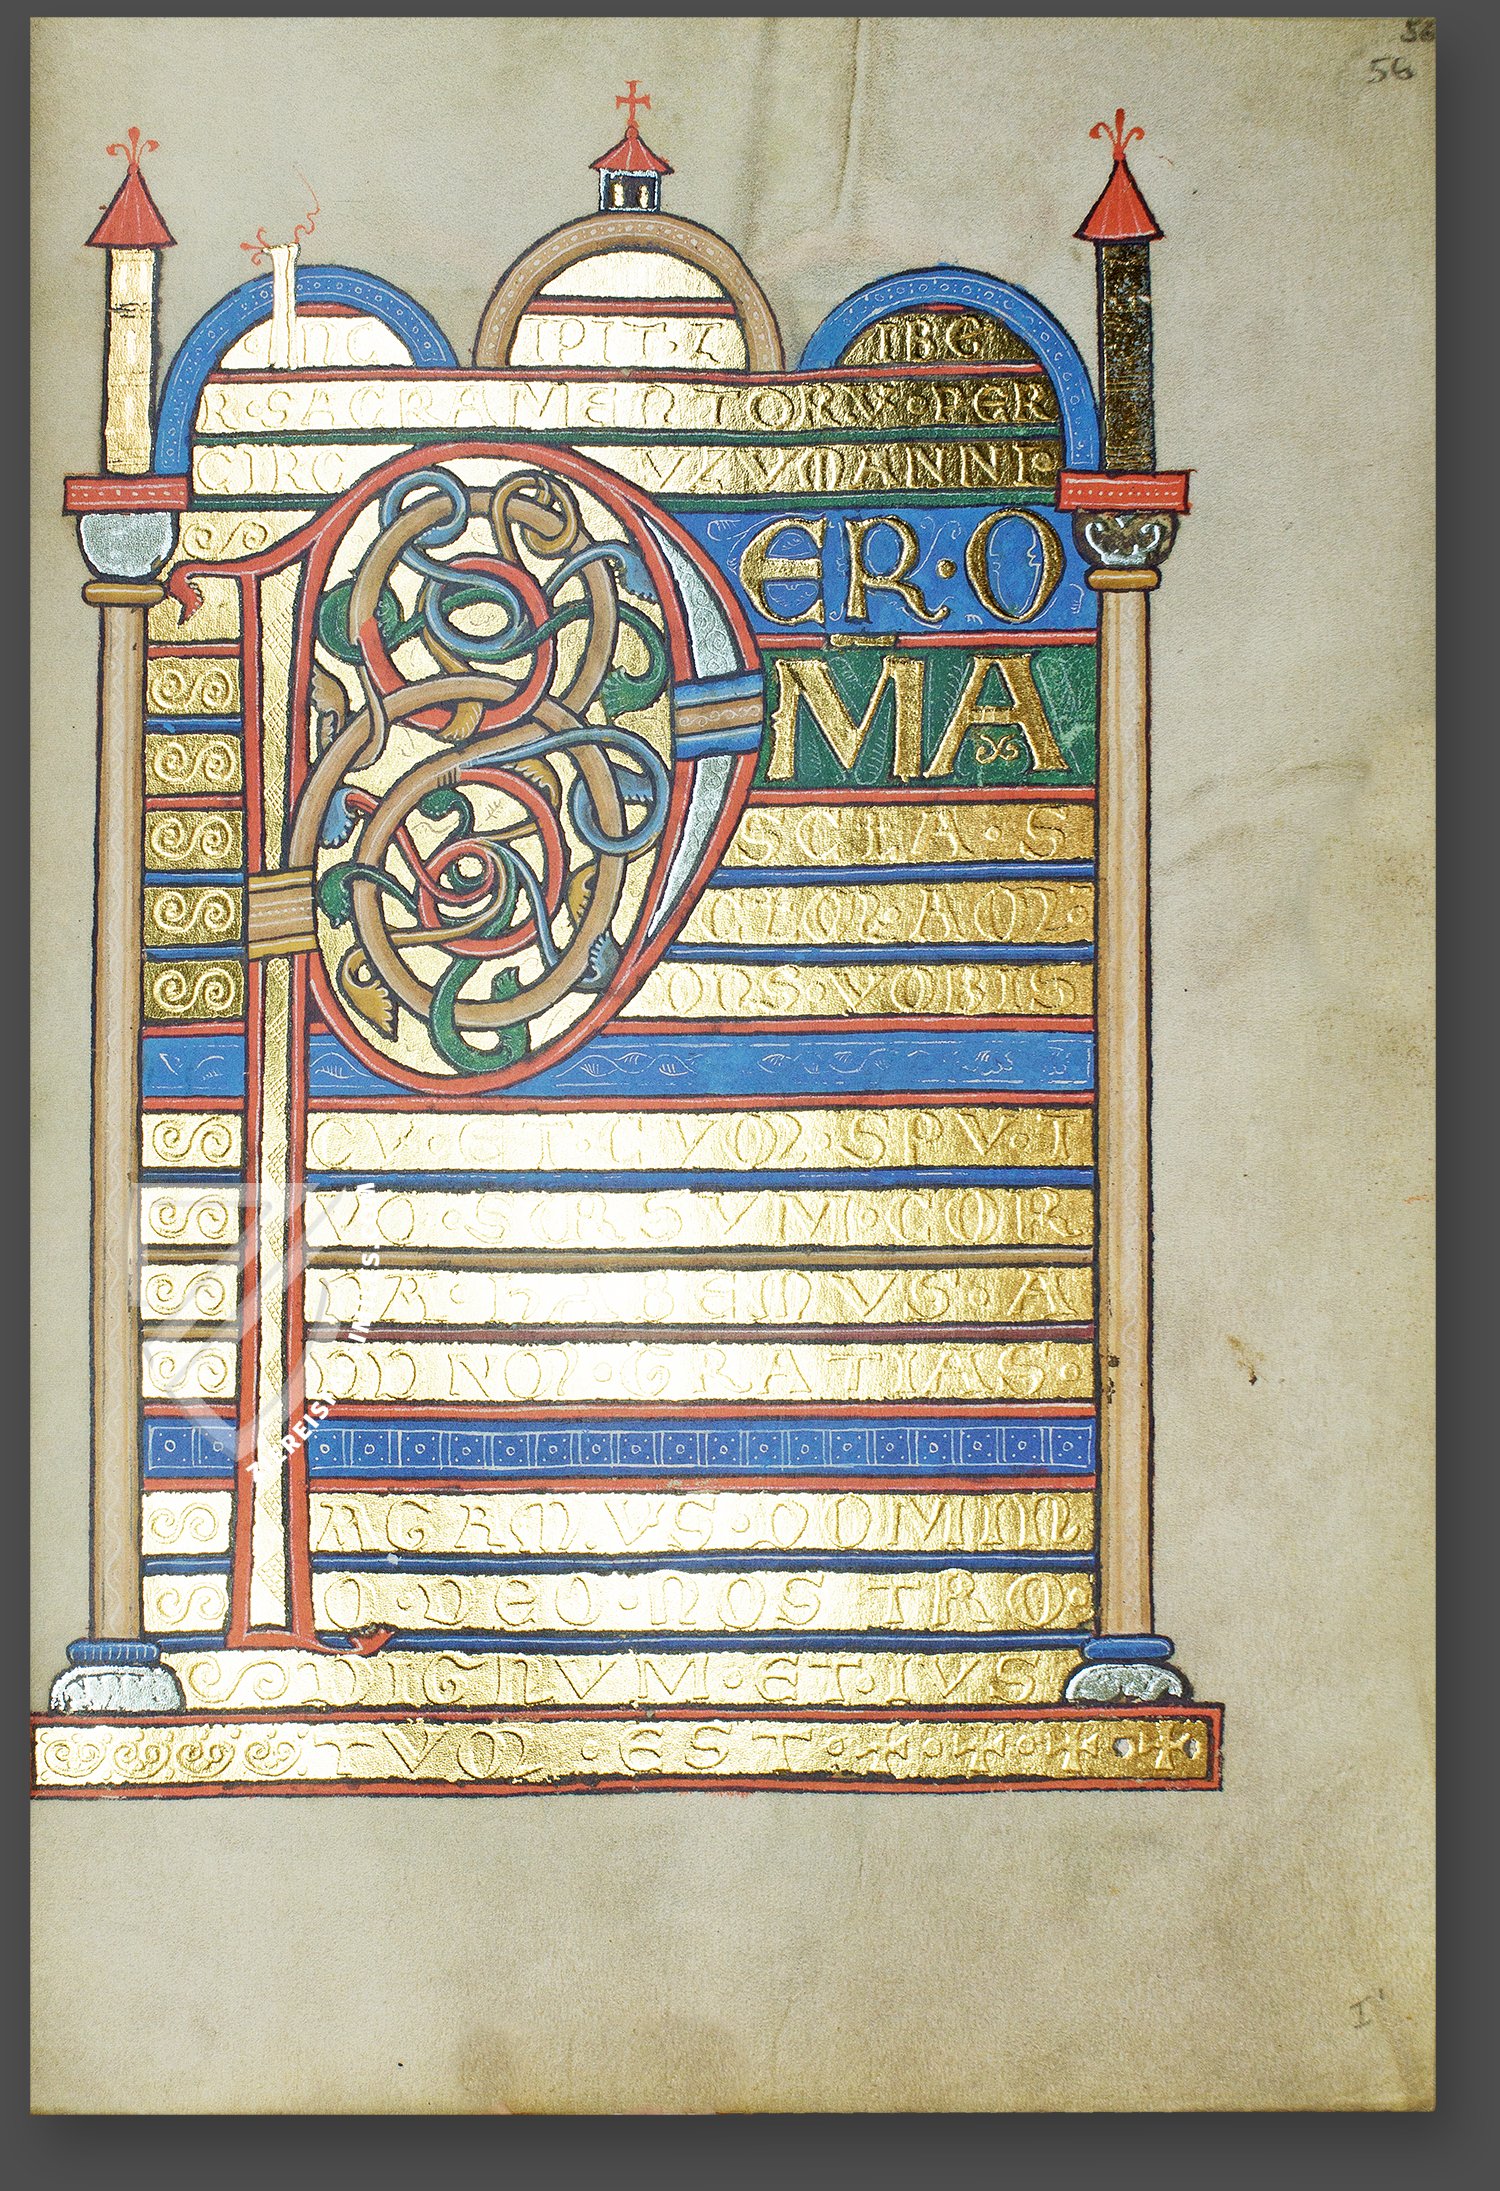 56
56
INC IPIT·L IBE
R·SACRAMENTORV·PER
CIRCVLVM ANNI
PER·O
MA
SCLA·S
CLOR·AM
DNS·VOBIS
CV·ET·CVM·SPV·T
VO·SVRSVM·COR
DA·HABEMVS·A
DD NOM·GRATIAS·
AGAMVS·DOMIN
O·DEO·NOSTRO·
DIGNVM·ET·IVS
TVM·EST·